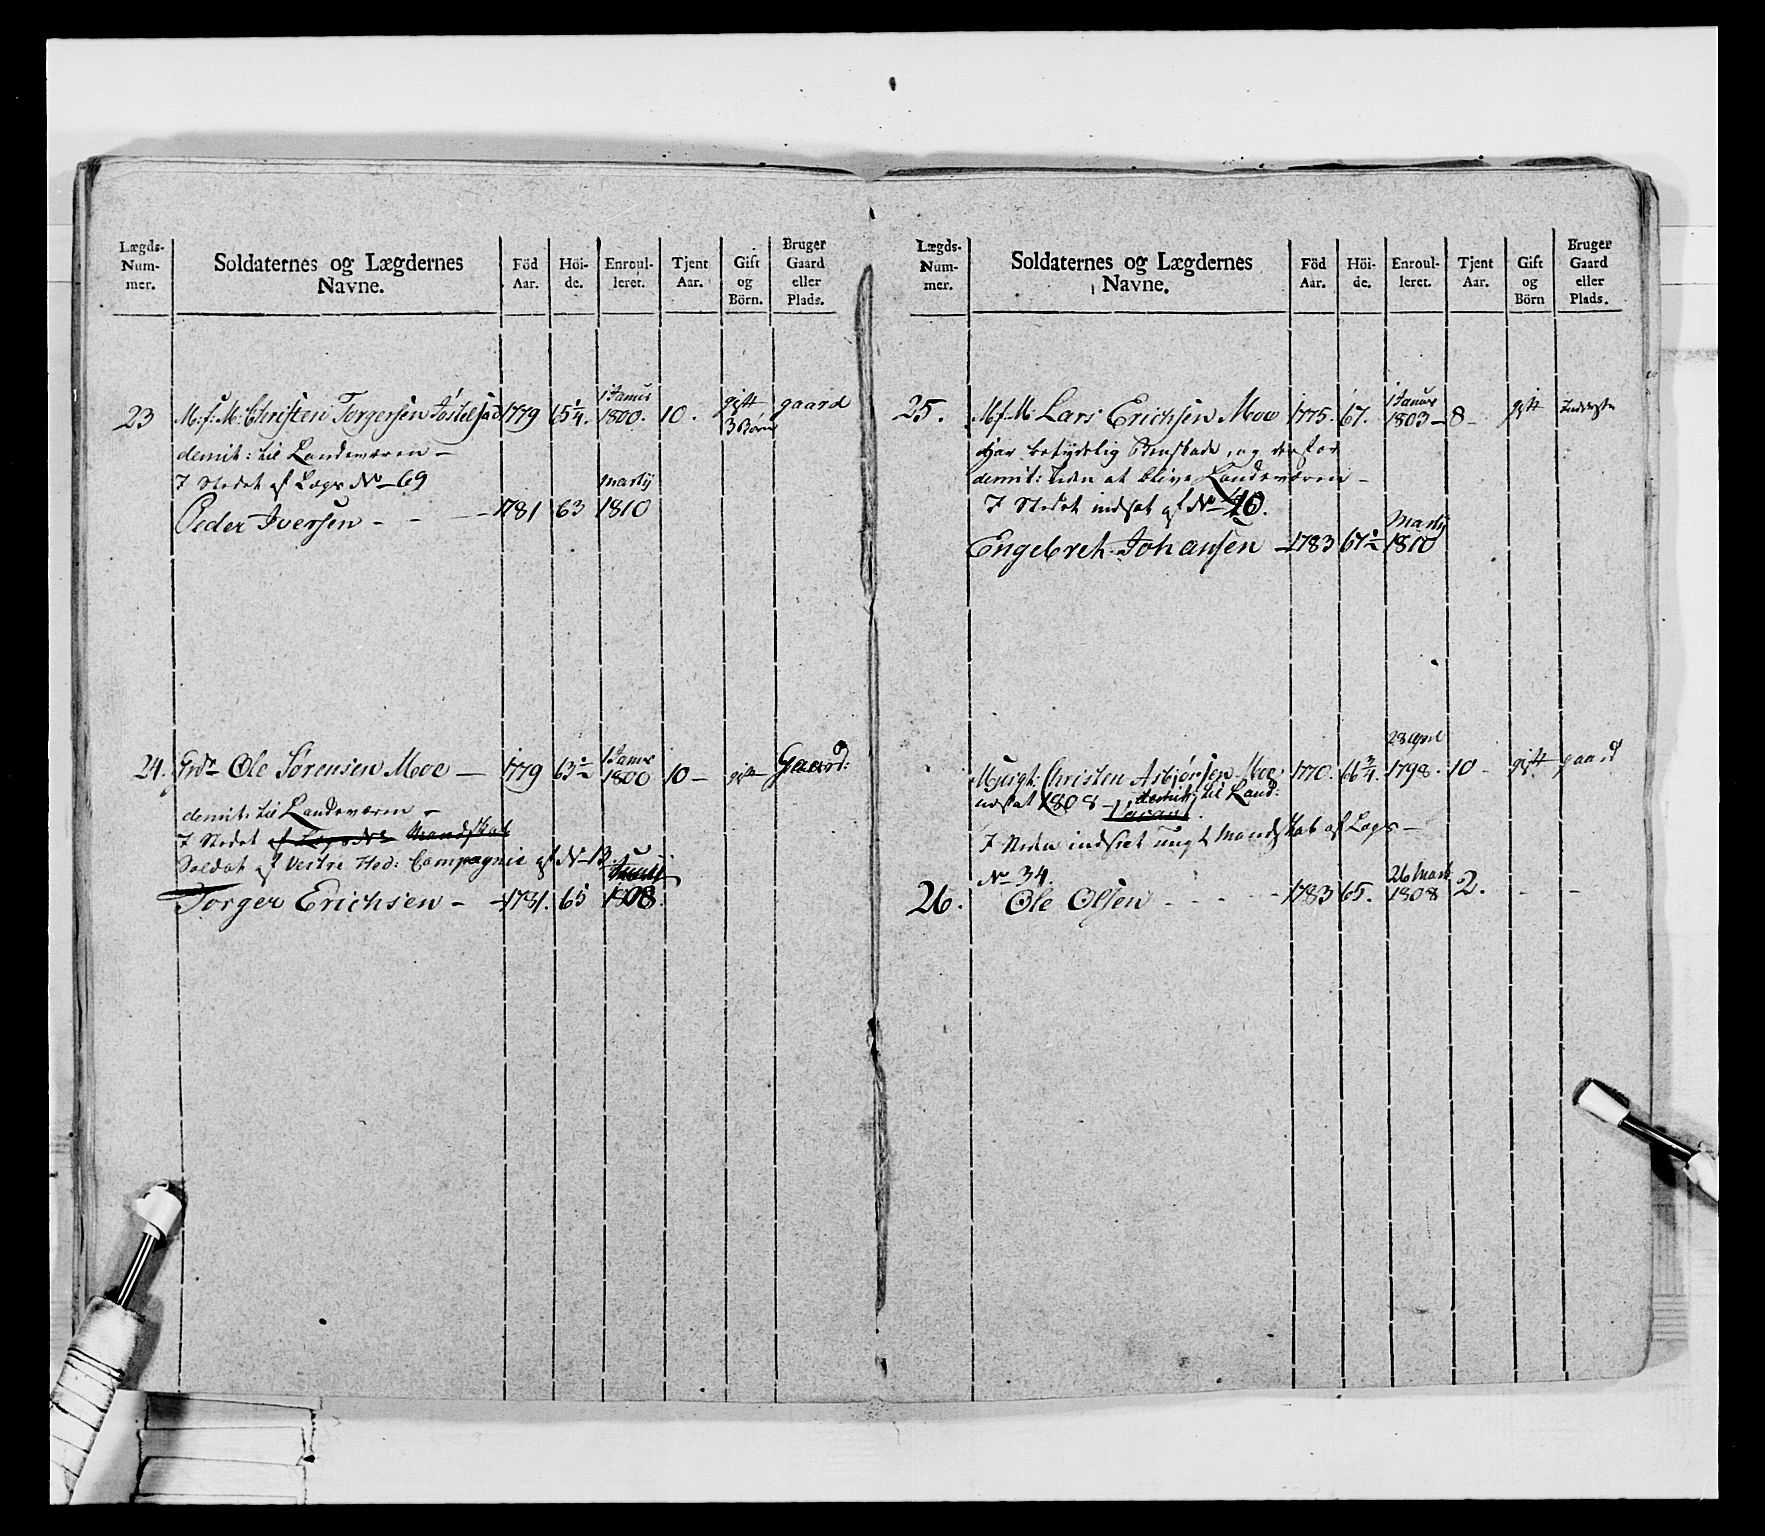 Lægds-Num-mer. Soldaternes og Lægdernes Navne. Föd Aar. Höi-de. Enroul-leret. Tjent Aar. Gift og Börn. Bruger Gaard eller Plads.
23 M: f: M: Christen Torgersen 1779 65 1/4 1 Janur 1800. 10. gift 3 Börn gaard
demit: til Landeværn —
I Stedet af Lægs No 69
Peder Iversen - - — 1781 63 martÿ 1810
24. Ole Sörensen Moe — 1779 63 1/2 1 Janur 1800 10 — gift Gaard:
demit: til Landeværn —
I Stedet af Lægs No Mandskab
Soldat af Vestre Hed: Compagnie af No 13
Torger Erichsen - — 1781. 65 1808.
Lægds-Num-mer. Soldaternes og Lægdernes Navne. Föd Aar. Höi-de. Enroul-leret. Tjent Aar. Gift og Börn Bruger Gaard eller Plads.
25. M f: M: Lars Erichsen Moe 1775. 67. 1 Janur 1803 — 8 - gift Inderste
Har betÿdelig , og derfor
demit: uden at blive Landeværn —
I Stedet indsat af No 40.
Engebret Johansen — 1783 67 1/2 Martÿ 1810
Christen Asbjörsen Moe 1770. 66 3/4. 28 April 1798. 10 - gift gaard
udsat 1808 — demit: til Land:
Vacant
I Steden indsiet ungt Mandskab af Lægs —
No 34.
26. Ole Olsen - - - - 1783 65. 26 Mart 1808 2. - -